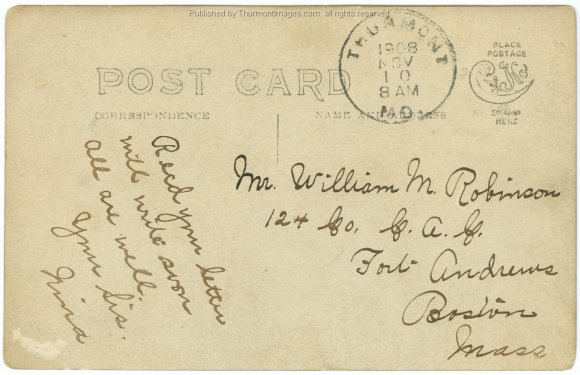 Published by ThurmontImages.com, all rights reserved
THURMONT
1908
NOV
10
8 AM
MD.
PLACE
POSTAGE
STAMP
HERE
POST CARD
CORRESPONDENCE
NAME AND ADDRESS
Recd your letter
will write soon
all are well.
Your Sis.
Nina
Mr. William M. Robinson
124 Co. C. A. C.
Fort Andrews
Boston
Mass